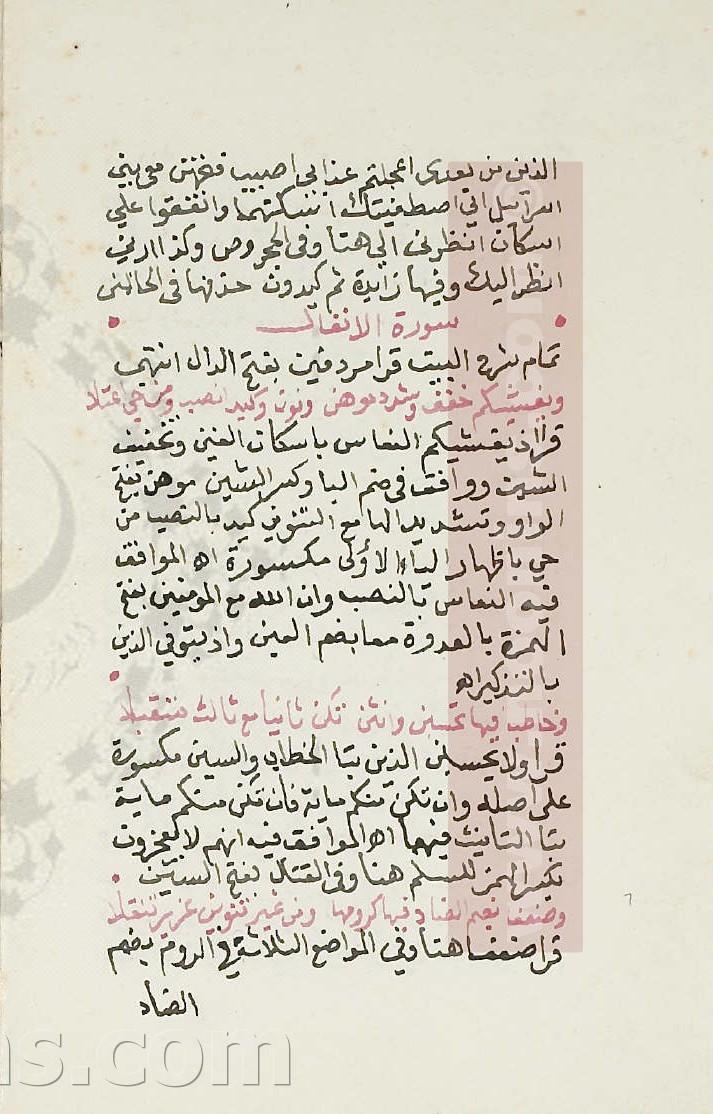 الذين من بعدي اعجلتم عذابي اصيب فخمس معي بني
اسرآئيل اني اصطفيتك اسكنها واتفقوا علي
اسكان انظرني الي هنا وفي الحجر وص وكذا ارني
انظر اليك وفيها زايدة ثم كيدون حذفها في الحالين
سورة الانفال
تمام شرح البيت قرا مردفين بفتح الدال انتهي
ويغشيكم خفف وشدد موهن ونون وكيد انصب ومن حي اعتلا
قرا اذ يغشيكم النعاس باسكان الغين وتخفيف
الشين ووافق في ضم اليا وكسر الشين موهن بفتح
الواو وتشديد الها مع التنوين كيد بالنصب من
حي باظهار الياء الاولى مكسورة اه الموافق
فيه النعاس بالنصب وان الله مع المومنين بفتح
الهمزة بالعدوة معا بضم العين واذ يتوفي الذين
بالتذكير اه
وخاطب فيها تحسبن وانثن تكن ثانيا مع ثالث فتقبلا
قرا ولا يحسبن الذين بتا الخطاب والسين مكسورة
على اصله وان تكن منكم ماية فان تكن منكم ماية
بتا التانيث فيهما اه الموافق فيه انهم لا يعجزون
بكسر الهمز للسلم هنا وفي القتال بفتح السين
وضعفا بضم الضاد فيها كرومها ومن غير تنوين عزير تنقلا
قرا ضعفا هنا وفي المواضع الثلاثة في الروم بضم
الضاد
ns.com